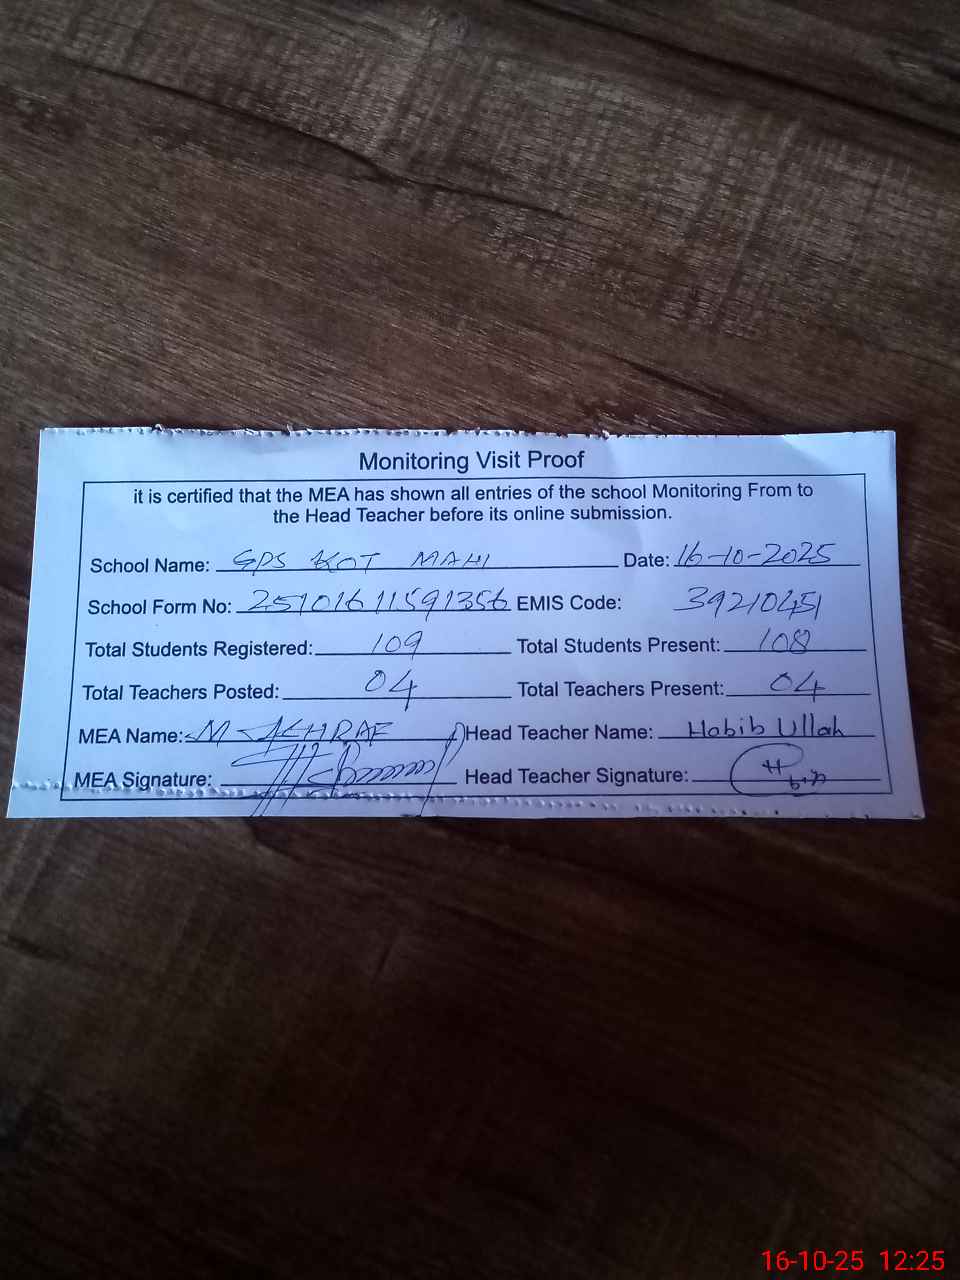 Monitoring Visit Proof
it is certified that the MEA has shown all entries of the school Monitoring From to
the Head Teacher before its online submission.
School Name: GPS KOT MAHI Date: 16-10-2025
School Form No: 25101611591356 EMIS Code: 39210451
Total Students Registered: 109 Total Students Present: 108
Total Teachers Posted: 04 Total Teachers Present: 04
MEA Name: M-ASHRAF Head Teacher Name: Habib Ullah
MEA Signature: Head Teacher Signature:
16-10-25 12:25